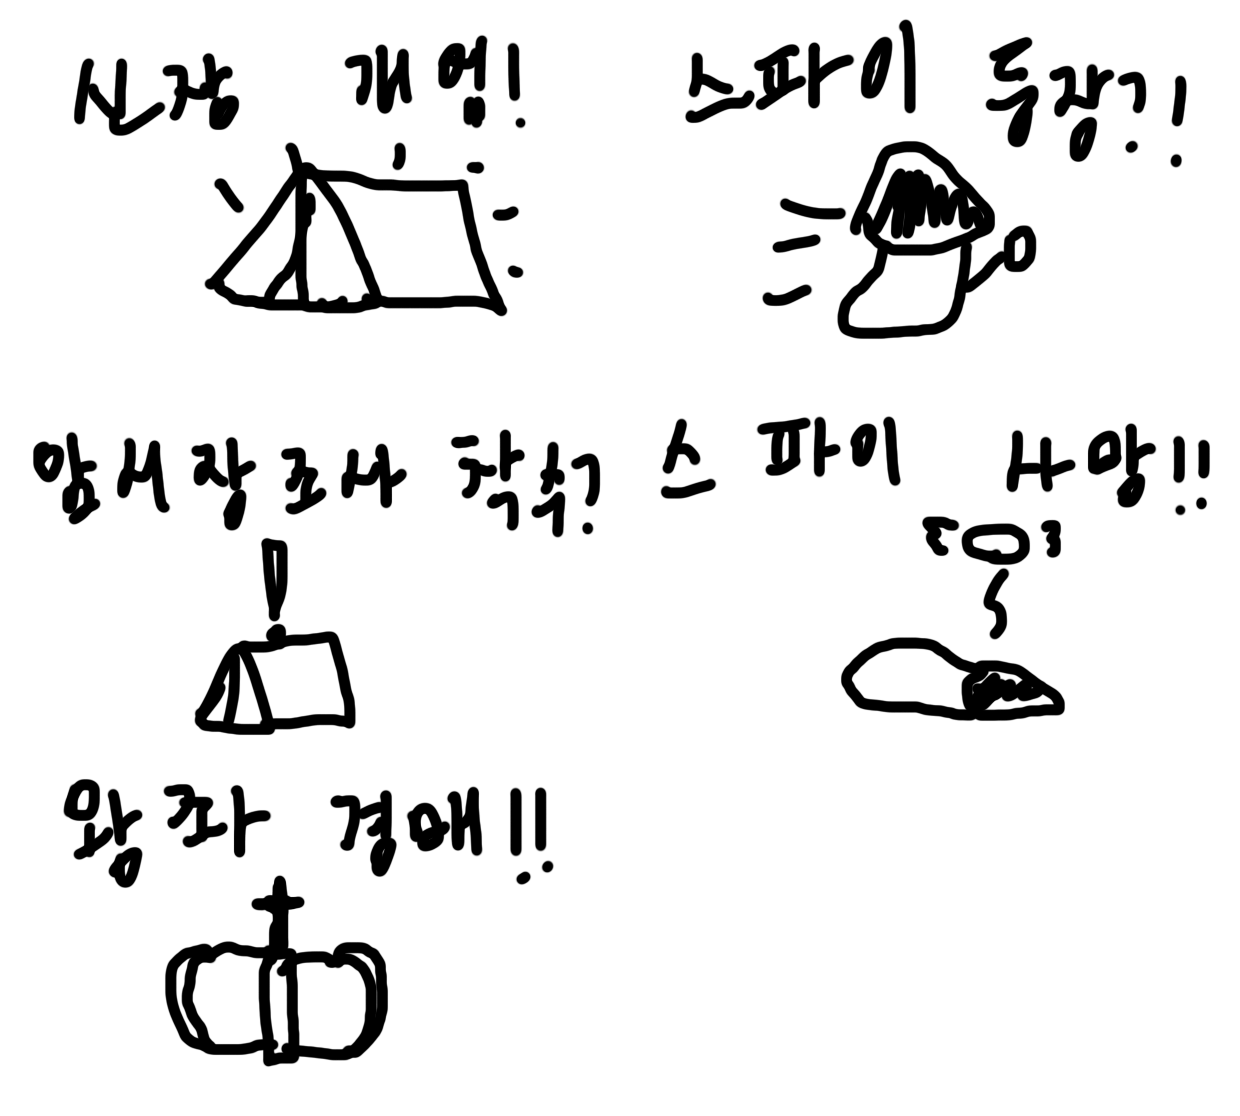 신장 개업!
스파이 등장?!
암시장 조사 착수?
스파이 사망!!
왕좌 경매!!